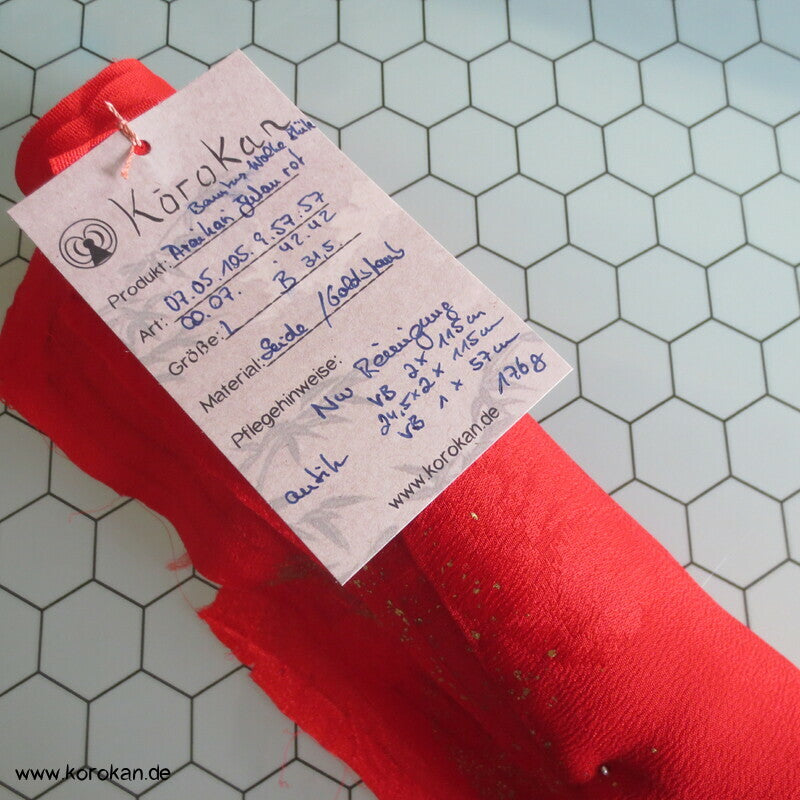 KoroKan
Bambus Wolke
Produkt: rot
Art: 07.05.105.9.57.57
00.07. 42.42
Größe: 1 B 31,5
Material: Seide / Goldstaub
Pflegehinweise:
Nur Reinigung
VB 2 x 115 cm
24,5 x 2 x 115 cm
VB 1 x 57 cm
antik 176g
www.korokan.de
www.korokan.de